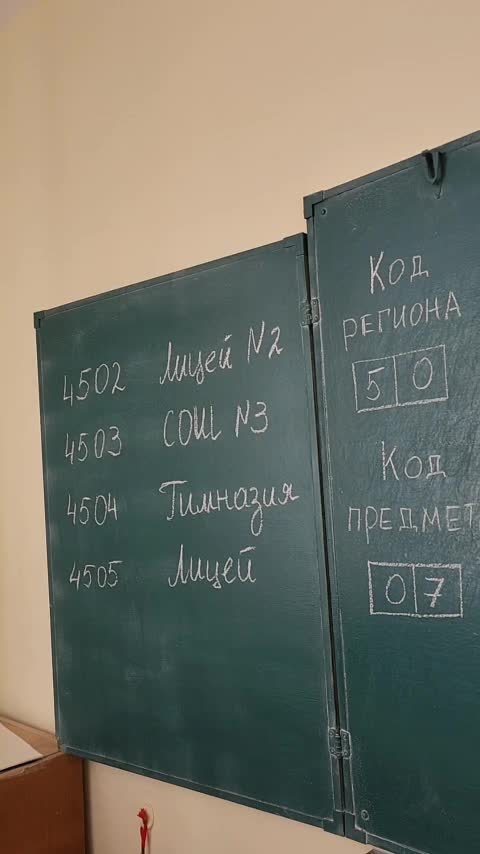 4502 Лицей N2
4503 СОШ N3
4504 Гимназия
4505 Лицей
Код
РЕГИОНА
50
Код
ПРЕДМЕТ
07